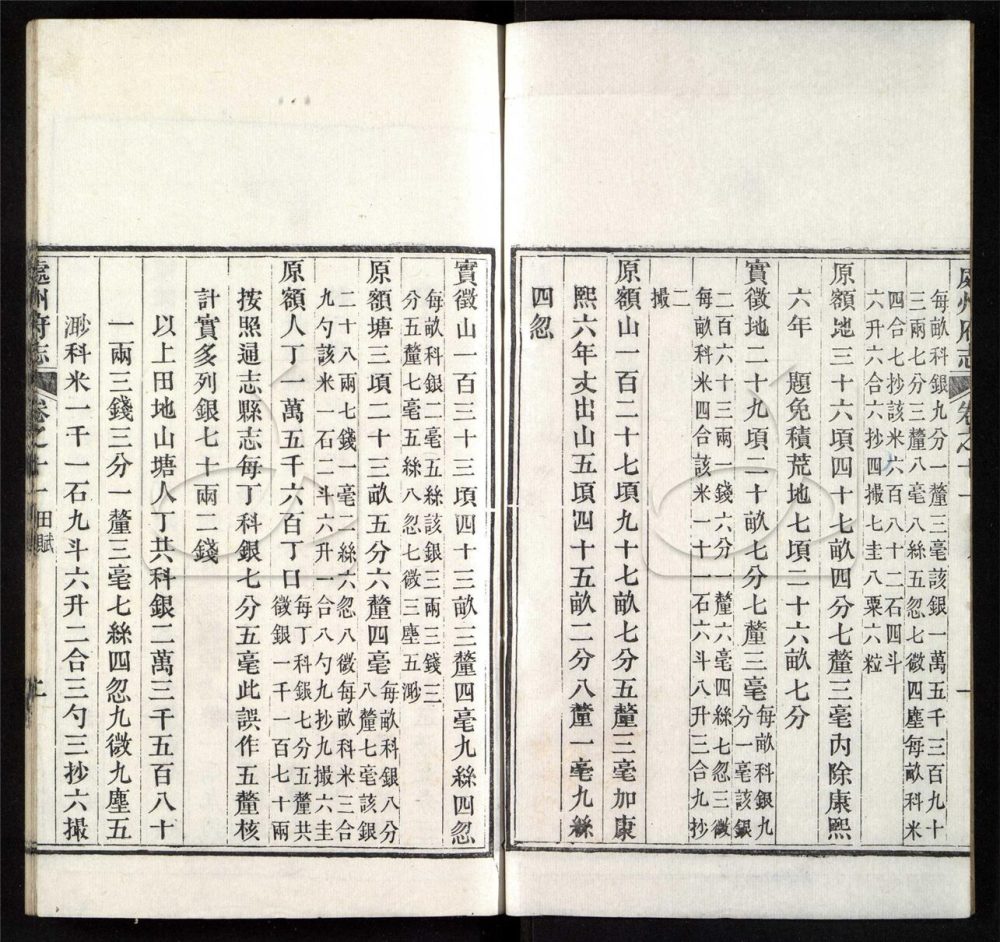 處州府志 卷之十一
每畝科銀九分一釐三毫該銀一萬五千三百九十
三兩七分三釐八毫八絲五忽七微四塵每畝科米
四合七抄該米六百八十二石四斗
六升六合六抄四撮七圭八粟六粒
原額地三十六頃四十七畝四分七釐三毫內除康熙
六年 題免積荒地七頃二十六畝七分
實徵地二十九頃二十畝七分七釐三毫每畝科銀九
分一毫該銀
二百六十三兩一錢六分一釐六毫四絲七忽三微
每畝科米四合該米一十一石六斗八升三合九抄
二
撮
原額山一百二十七頃九十七畝七分五釐三毫加康
熙六年丈出山五頃四十五畝二分八釐一毫九絲
四忽
實徵山一百三十三頃四十三畝三釐四毫九絲四忽
每畝科銀二毫五絲該銀三兩三錢三
分五釐七毫五絲八忽七微三塵五渺
原額塘三頃二十三畝五分六釐四毫每畝科銀八分
八釐七毫該銀
二十八兩七錢一毫二絲六忽八微每畝科米三合
九勺該米一石二斗六升一合八勺九抄九撮六圭
原額人丁一萬五千六百丁口每丁科銀七分五釐共
徵銀一千一百七十兩
按照通志縣志每丁科銀七分五毫此誤作五釐核
計實多列銀七十兩二錢
以上田地山塘人丁共科銀二萬三千五百八十
一兩三錢三分一釐三毫七絲四忽九微九塵五
渺科米一千一石九斗六升二合三勺三抄六撮
處州府志 卷之十一 田賦